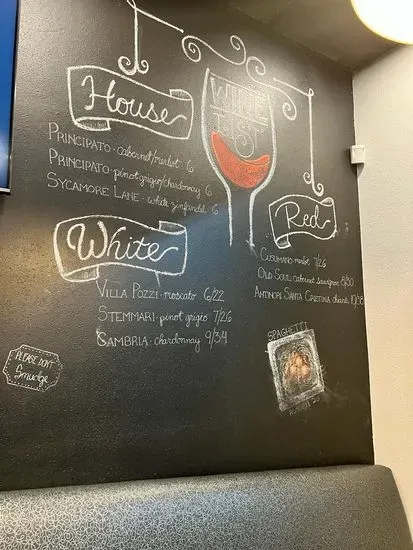 WINE
LIST
House
PRINCIPATO · cabernet/merlot 6
PRINCIPATO · pinot grigio/chardonnay 6
SYCAMORE LANE · white zinfandel 6
White
VILLA POZZI · moscato 6/22
STEMMARI · pinot grigio 7/26
CAMBRIA · chardonnay 9/34
Red
CUSUMANO · merlot 7/26
OLD SOUL · cabernet sauvignon 8/30
ANTINORI SANTA CRISTINA chianti 10/38
PLEASE DON'T
Smudge
SPAGHETTI